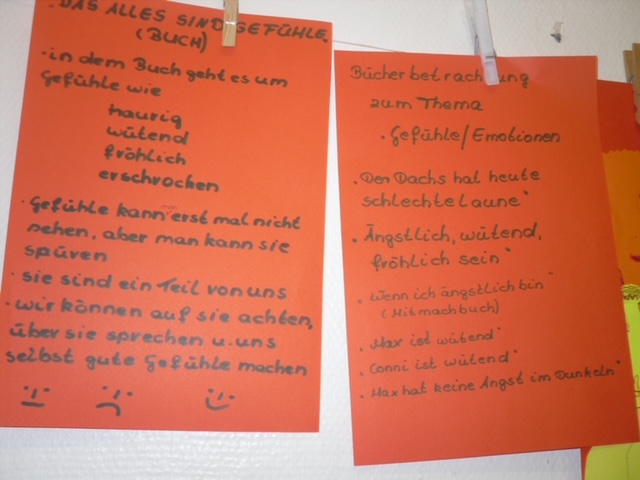 . DAS ALLES SIND GEFÜHLE.
(BUCH)
• in dem Buch geht es um
Gefühle wie
traurig
wütend
fröhlich
erschrocken
• Gefühle kann man erst mal nicht
sehen, aber man kann sie
spüren
• sie sind ein Teil von uns
• wir können auf sie achten,
über sie sprechen u. uns
selbst gute Gefühle machen
Bücherbetrachtung
zum Thema
• Gefühle/Emotionen
• Der Dachs hat heute
schlechte Laune"
• Ängstlich, wütend,
fröhlich sein"
• Wenn ich ängstlich bin"
(Mitmachbuch)
• Max ist wütend"
• Conni ist wütend"
• Max hat keine Angst im Dunkeln"